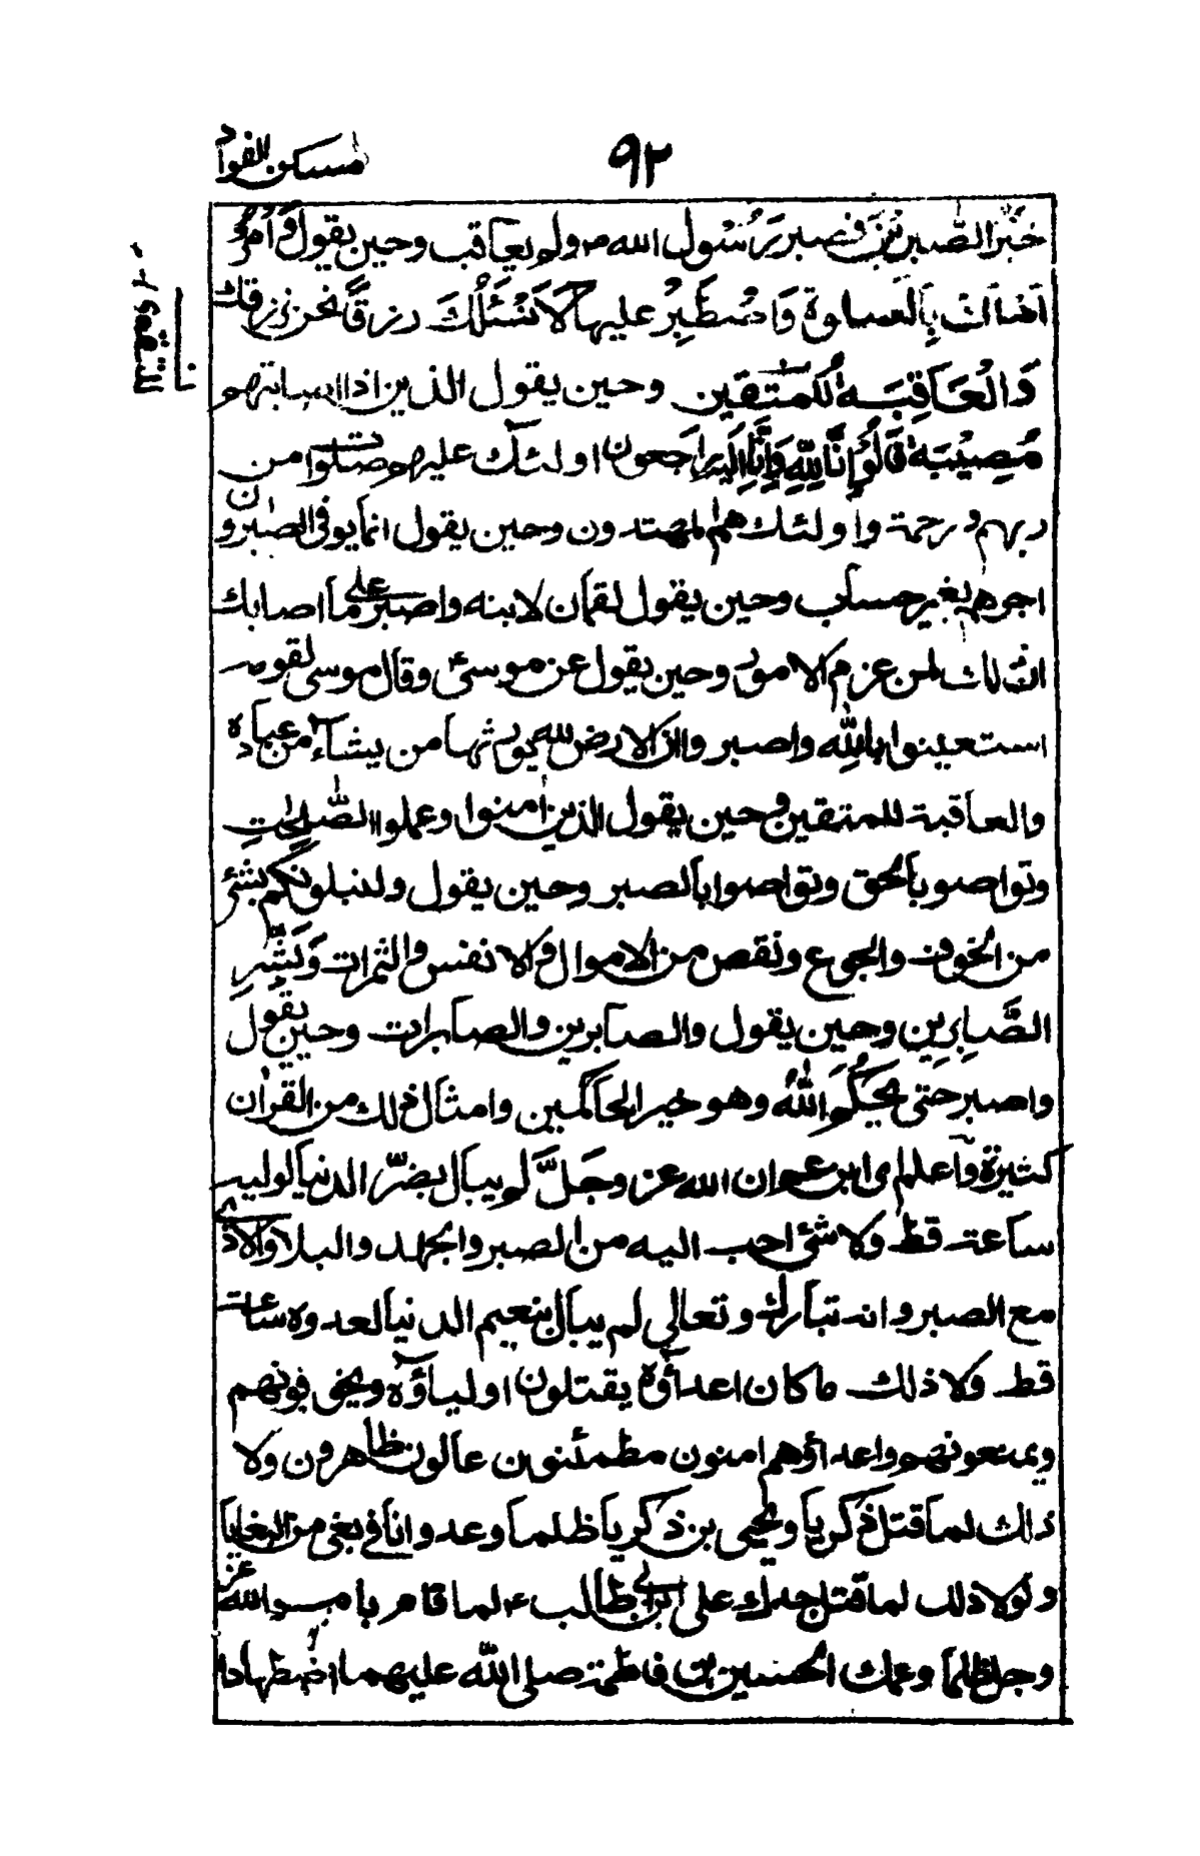 ٩٢
مسكن الفواد
خير للصبرين فصبر رسول الله ص ولم يعاقب وحين يقول وأمر
اهلك بالصلوة واصطبر عليها لا نسئلك رزقا نحن نرزقك
والعاقبة للمتقين وحين يقول الذين اذا اصابتهم
مصيبة قالوا انا لله وانا اليه راجعون اولئك عليهم صلوات من
ربهم ورحمة واولئك هم المهتدون وحين يقول انما يوفى الصبرون
اجرهم بغير حساب وحين يقول لقمان لابنه واصبر على ما اصابك
ان ذلك لمن عزم الامور وحين يقول عن موسى وقال موسى لقومه
استعينوا بالله واصبروا ان الارض لله يورثها من يشاء من عباده
والعاقبة للمتقين وحين يقول الذين امنوا وعملوا الصلحت
وتواصو بالحق وتواصوا بالصبر وحين يقول ولنبلونكم بشئ
من الخوف والجوع ونقص من الاموال والانفس والثمرات وبشر
الصابرين وحين يقول والصابرين والصابرات وحين يقول
واصبر حتى يحكم الله وهو خير الحاكمين وامثال ذلك من القران
كثيرة واعلم اى ابن عم وان الله عز وجل لم يبال بضر الدنيا لوليه
ساعة قط ولا شئ احب اليه من الصبر والجهد والبلاء والاذى
مع الصبر وانه تبارك وتعالى لم يبال بنعيم الدنيا لعدوه ساعة
قط ولا ذلك ما كان اعداؤه يقتلون اولياؤه ويخوفونهم
ويمنعونهم واعداؤهم امنون مطمئنون عالون ظاهرون ولا
ذلك لما قتل ذكريا ويحيى بن ذكريا ظلما وعدوانا في بغى من البغايا
ولولا ذلك لما قتل جدك على ابن ابي طالب ع لما قام بامر الله عز
وجل ظلما وعمك الحسين بن فاطمة صلى الله عليهما اضطهادا
للتقوى